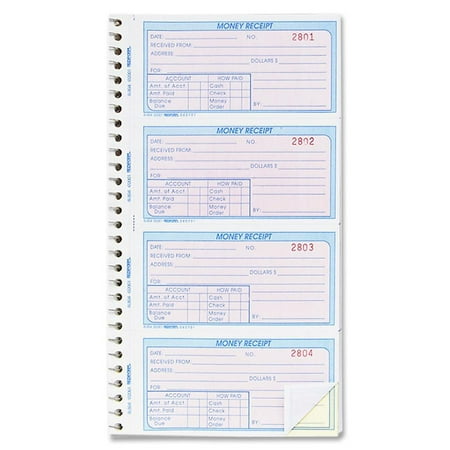 MONEY RECEIPT
DATE: NO. 2801
RECEIVED FROM
ADDRESS
DOLLARS $
FOR
ACCOUNT HOW PAID
Amt. of Acct. Cash
Amt. Paid Check
Balance Due Money Order
BY:
MONEY RECEIPT
DATE: NO. 2802
RECEIVED FROM
ADDRESS
DOLLARS $
FOR:
ACCOUNT HOW PAID
Amt. of Acct. Cash
Amt. Paid Check
Balance Due Money Order
BY:
MONEY RECEIPT
DATE: NO. 2803
RECEIVED FROM
ADDRESS:
DOLLARS $
FOR:
ACCOUNT HOW PAID
Amt. of Acct. Cash
Amt. Paid Check
Balance Due Money Order
BY:
MONEY RECEIPT
DATE: NO. 2804
RECEIVED FROM
ADDRESS
DOLLARS $
FOR:
ACCOUNT HOW PAID
Amt. of Acct. Cash
Amt. Paid Check
Balance Due Money Order
BY: